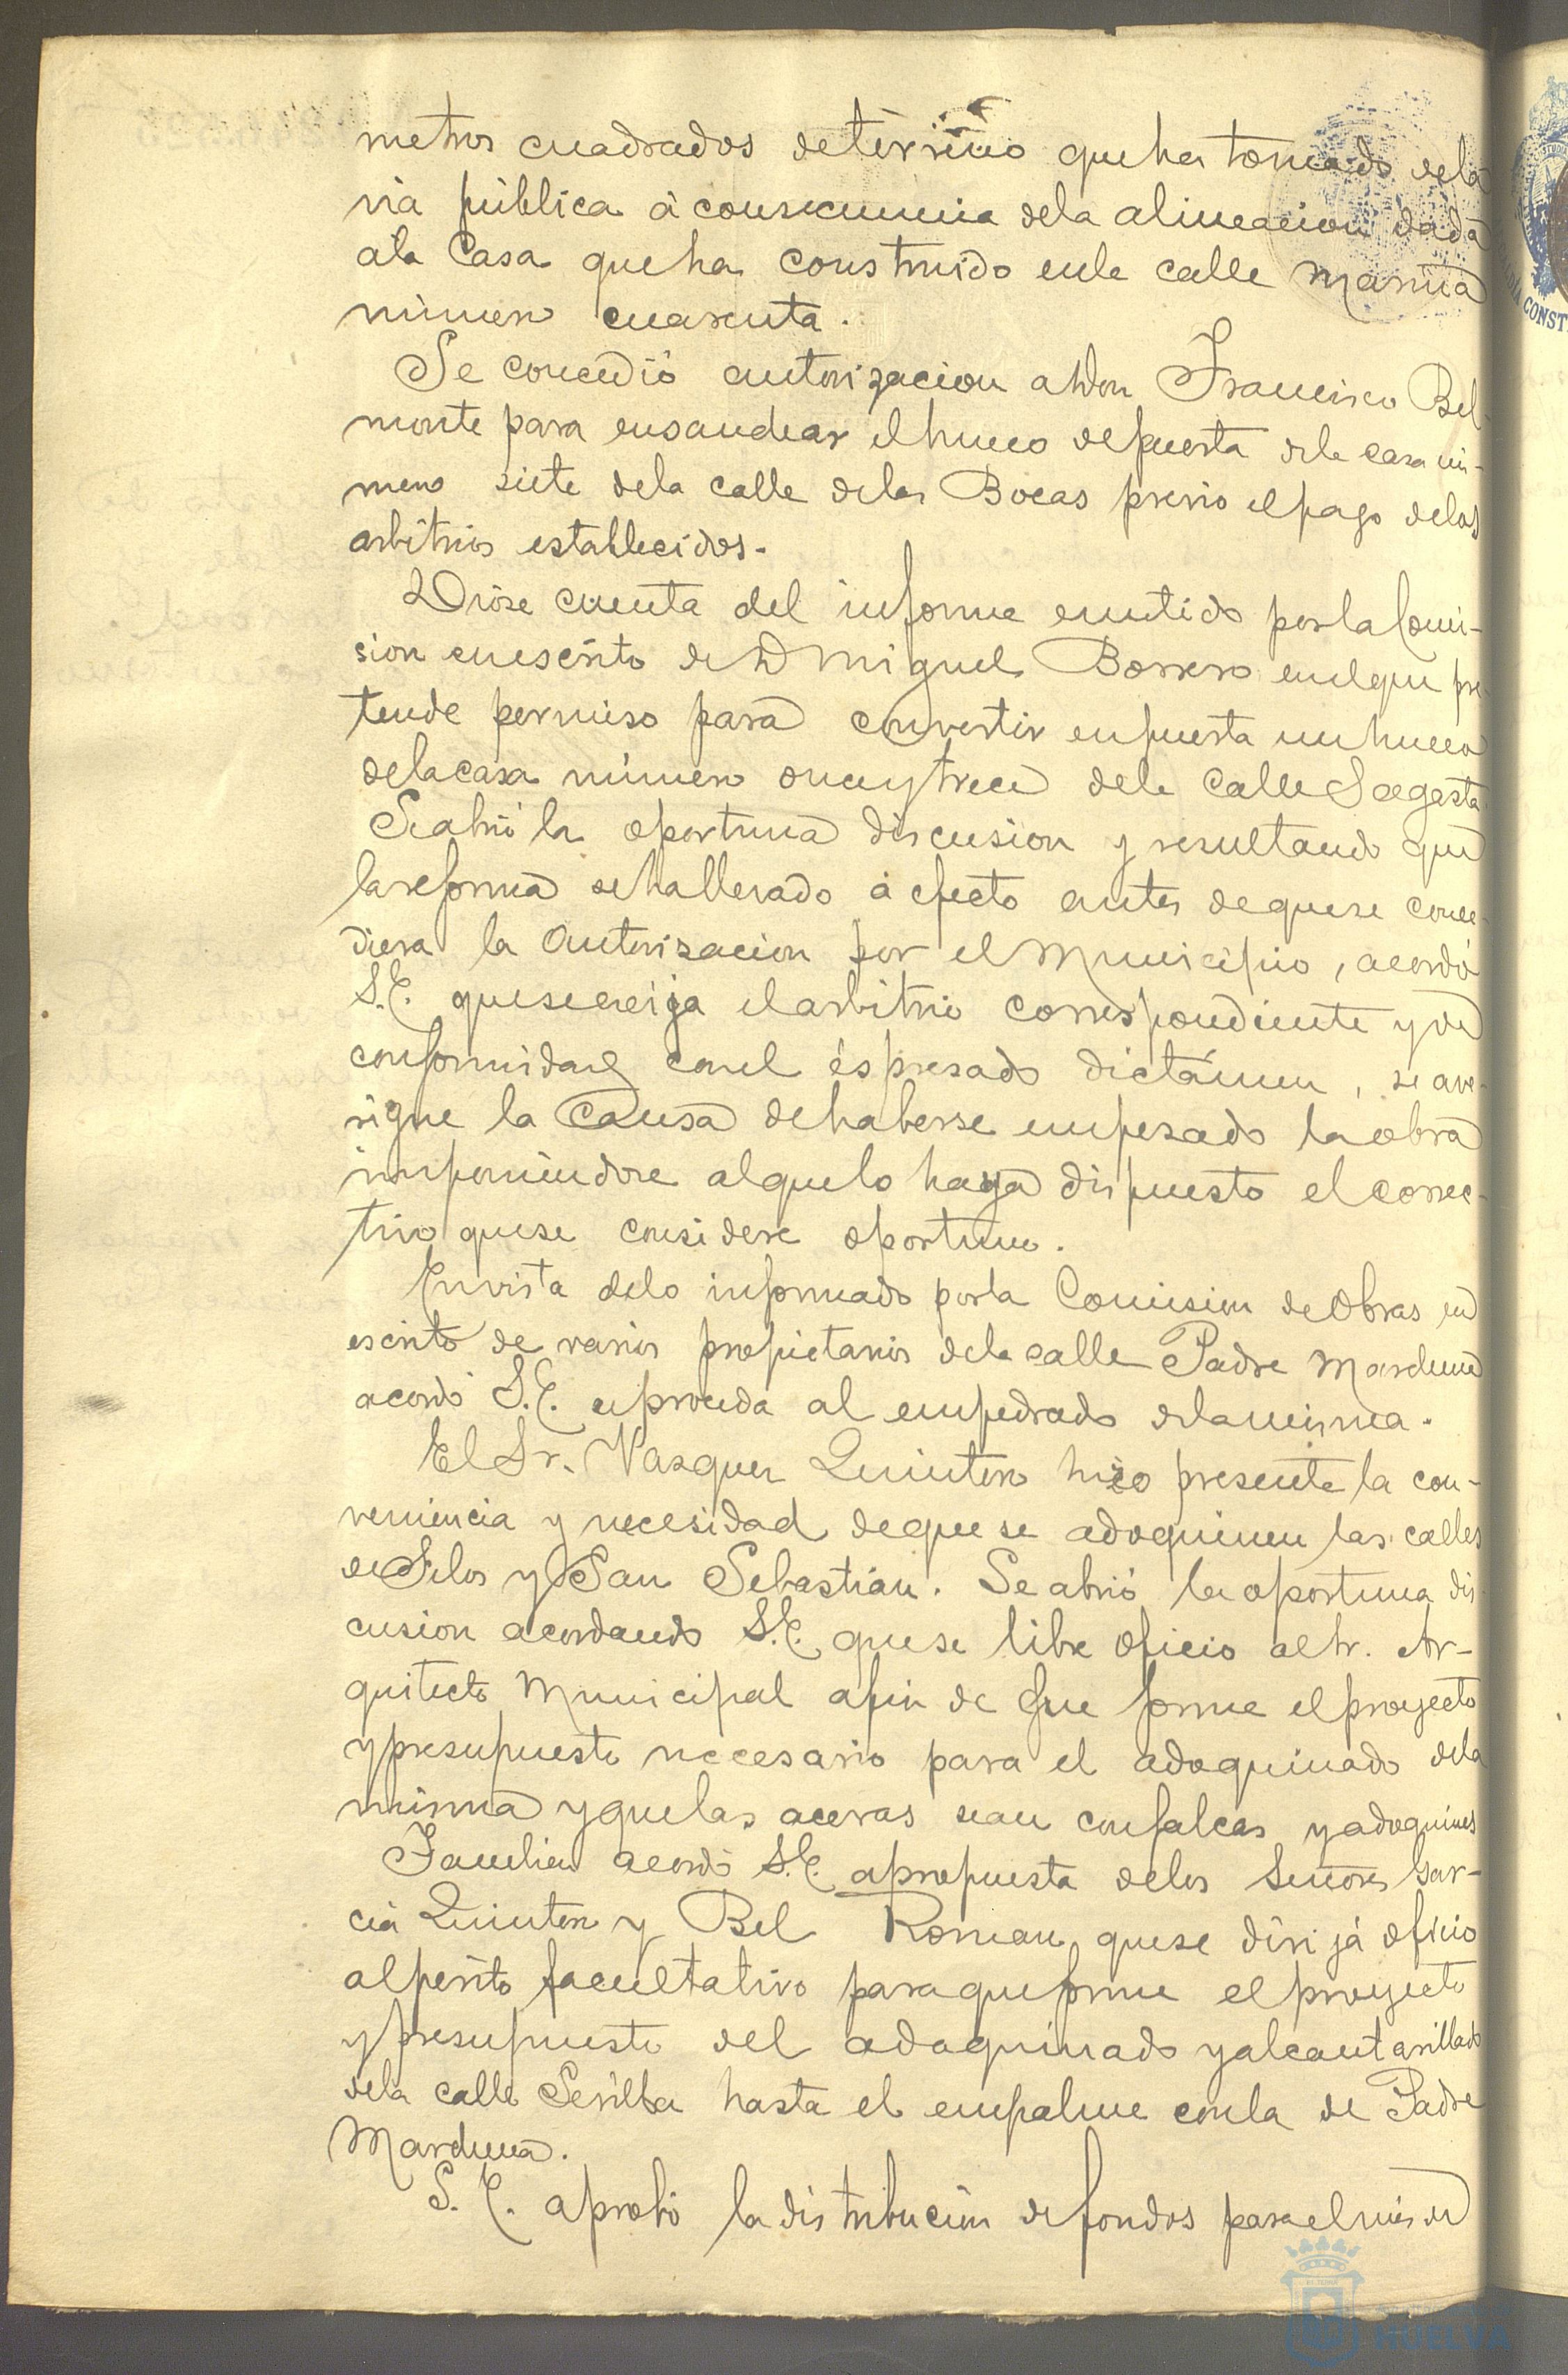 metros cuadrados de terreno que ha tomado de la
via pública á consecuencia de la alineacion dada
a la Casa que ha construido en la calle Marina
número cuarenta.
Se concedió autorizacion a Don Francisco Bel-
monte para ensanchar el hueco de puerta de la casa nú-
mero siete de la calle de las Bocas previo el pago de los
arbitrios establecidos.
Dióse cuenta del informe emitido por la Comi-
sion en escrito de D Miguel Borrero en el que pre-
tende permiso para convertir en puerta un hueco
de la casa número once y trece de la calle Sagasta
Se abrió la oportuna discusion y resultando que
la reforma se ha llevado á efecto antes de que se conce-
diera la autorizacion por el Municipio, acordó
S.E. que se exija el arbitrio correspondiente y de
conformidad con el espresado dictámen, se ave-
rigue la causa de haberse empesado la obra
imponiendose al que lo haya dispuesto el correc-
tivo que se considere oportuno.
En vista de lo informado por la Comision de Obras en
escrito de varios propietarios de la calle Padre Marchena
acordó S.E. se proceda al empedrado de la misma.
El Sr. Vazquez Quintero hizo presente la con-
veniencia y necesidad de que se adoquinen las calles
de Silos y San Sebastián. Se abrió la oportuna dis
cusion acordando S.E. que se libre oficio al Sr. Ar-
quitecto Municipal a fin de que forme el proyecto
y presupuesto necesario para el adoquinado de la
misma y que las aceras sean con falcas y adoquines
Tambien acordó S.E. a propuesta de los Señores Gar-
cia Quintero y Bel Roman, que se dirija oficio
al perito facultativo para que forme el proyecto
y presupuesto del adoquinado y alcantarillado
de la calle Sevilla hasta el empalme con la de Padre
Marchena.
S. E. aprobó la distribucion de fondos para el mes de
CONST
HUELVA